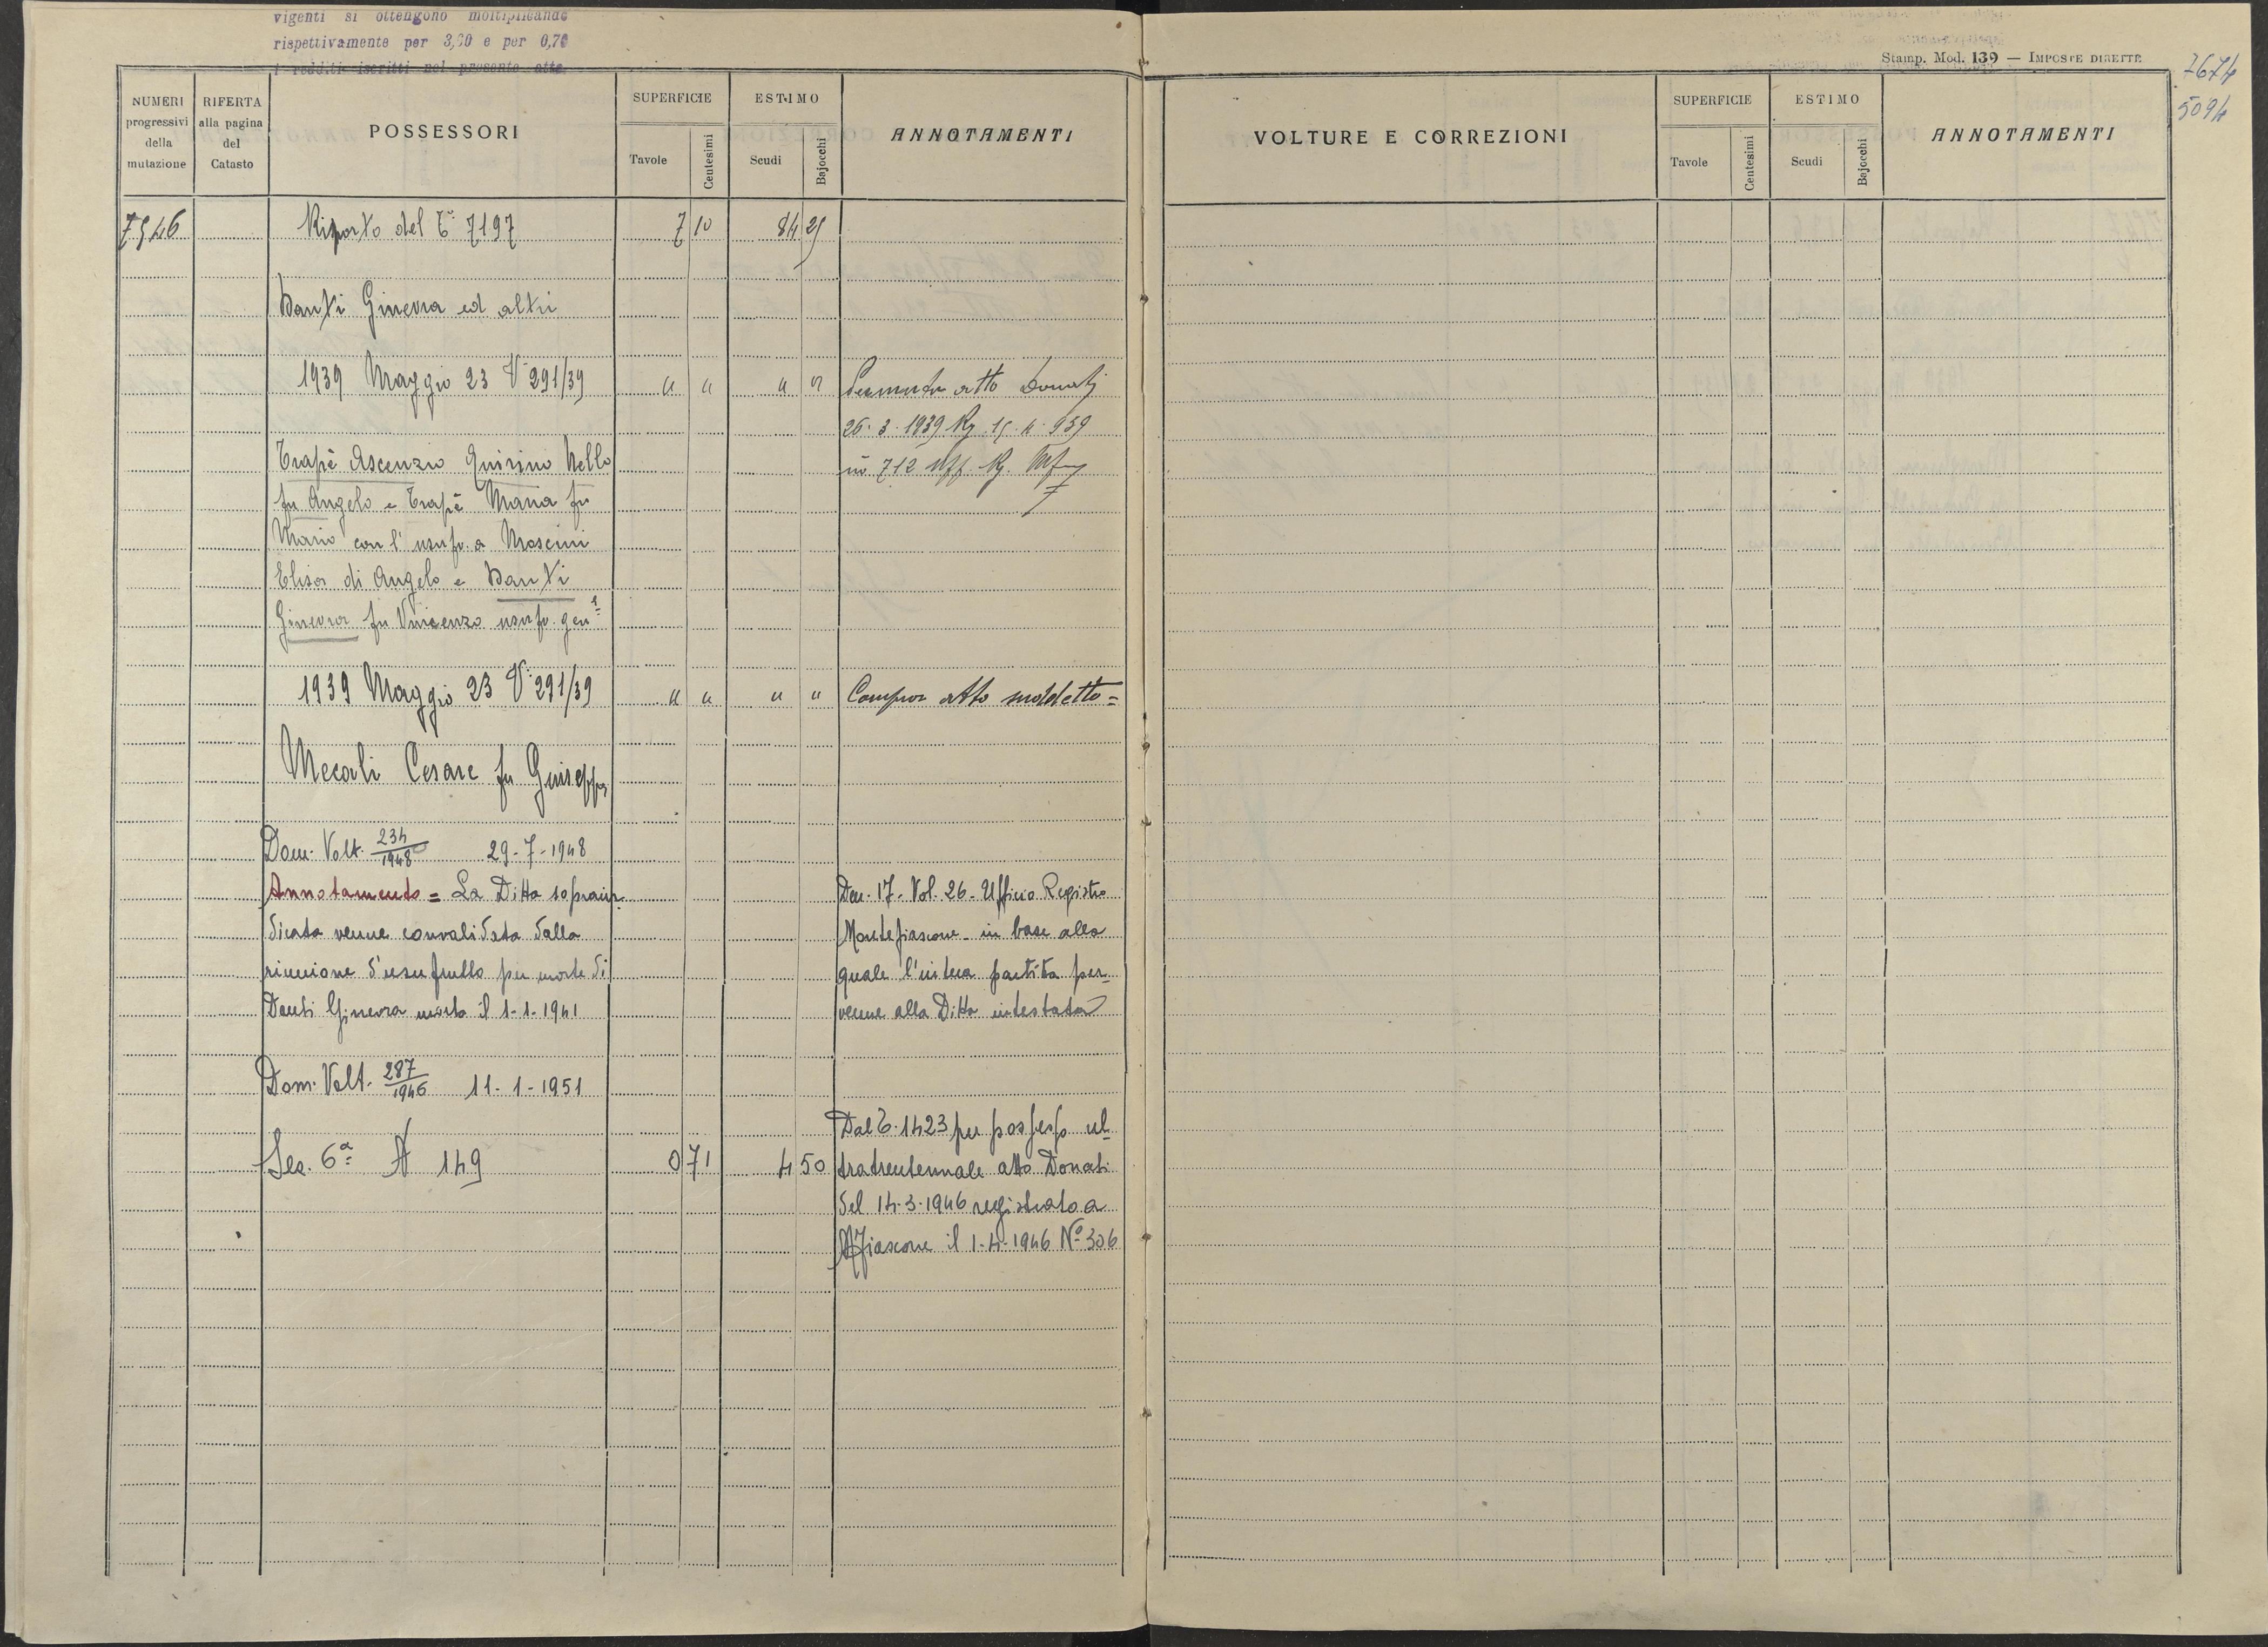 vigenti si ottengono moltiplicando
rispettivamente per 3,60 e per 0,70
i redditi iscritti nel presente atto.
NUMERI progressivi della mutazione
RIFERTA alla pagina del Catasto
POSSESSORI
SUPERFICIE
Tavole
Centesimi
ESTIMO
Scudi
Bajocchi
ANNOTAMENTI
7546 Riporto del T.º 7197 7 10 84 25
Danti Ginevra ed altri
1939 Maggio 23 V. 291/39 " " " " Permuta atto Donati
26. 3. 1939 Rg. 15. 4. 939
nº 712 Uff. Rg.
Trapè Ascenzio Quirino Nello
fu Angelo e Trapè Maria fu
Mario con l'usufr. a Moscini
Elisa di Angelo e Danti
Ginevra fu Vincenzo usufr. gen.
1939 Maggio 23 V. 291/39 " " " " Compra atto suddetto =
Mecali Cesare fu Giuseppe
Dom. Volt. 234/1948 29-7-1948
Annotamento = La Ditta soprain-
dicata venne convalidata dalla
riunione d'usufrutto per morte di
Danti Ginevra morta il 1-1-1941
Den. 17- Vol. 26- Ufficio Registro
Montefiascone - in base alla
quale l'intera partita per-
venne alla Ditta intestata
Dom. Volt. 287/1946 11-1-1951
Sez. 6ª A 149 0 71 4 50
Dal T. 1423 per possesso ul-
tratrentennale atto Donati
del 14-3-1946 registrato a
Mfiascone il 1-4-1946 Nº 306
Stamp. Mod. 139 — IMPOSTE DIRETTE
7674
5094
VOLTURE E CORREZIONI
SUPERFICIE
Tavole
Centesimi
ESTIMO
Scudi
Bajocchi
ANNOTAMENTI